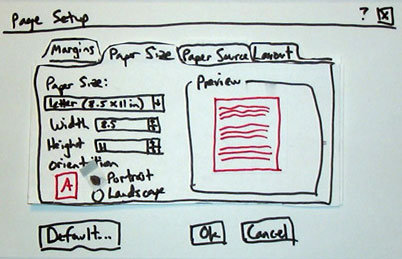 Page Setup ? X
Margins Paper Size Paper Source Layout
Paper Size: Preview
Letter (8.5 x 11 in)
Width 8.5
Height 11
orientation
A Portrait
Landscape
Default... Ok Cancel